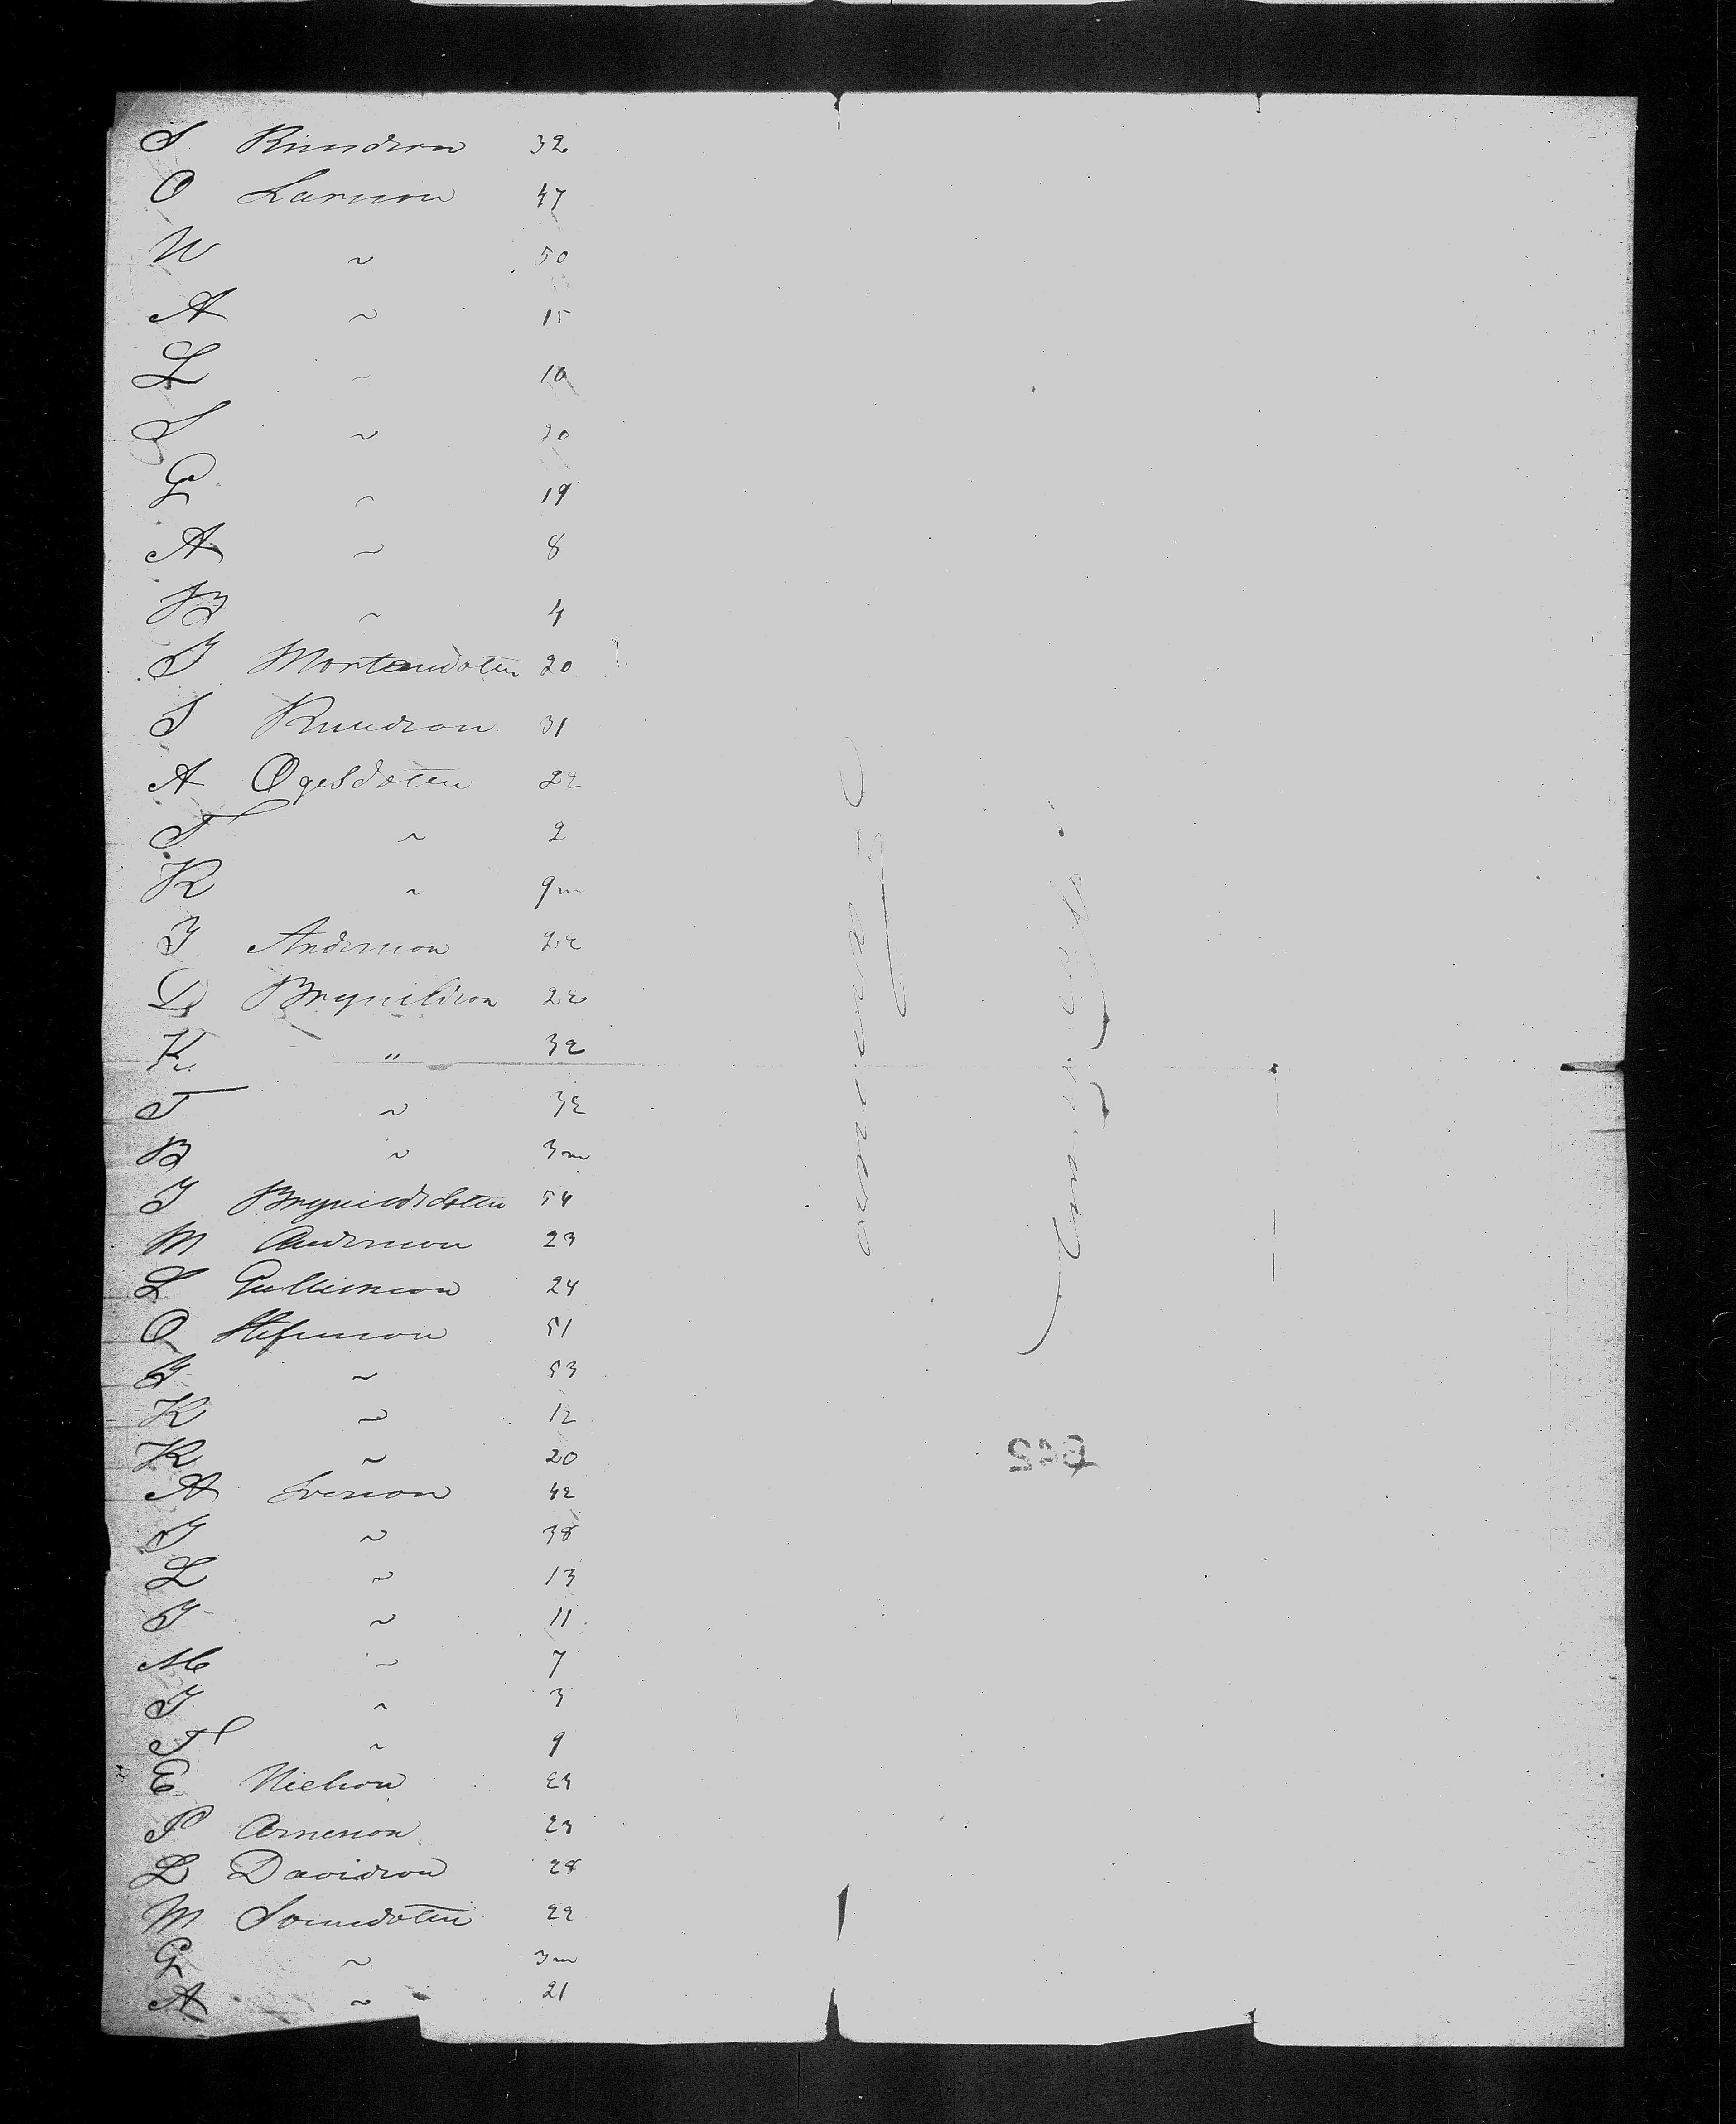 S Knudson 32
O Larson 47
N ~ 50
A ~ 15
L ~ 10
S ~ 20
G ~ 19
A ~ 8
B ~ 4
I Mortensdoten 20
S Knudson 31
A Ogesdoten 22
T ~ 2
K ~ 9m
I Anderson 22
D Brynildson 22
K " 32
T ~ 32
B ~ 3m
I Brynildsdoten 54
M Anderson 23
L Gullickson 24
O Stefenson 51
B ~ 53
K ~ 12
K ~ 20
A Iverson 42
I ~ 38
L ~ 13
I ~ 11
M ~ 7
I ~ 3
T ~ 9
E Nielson 24
P Arneson 23
L Davidson 28
M ~ 22
G ~ 3m
A ~ 21
642